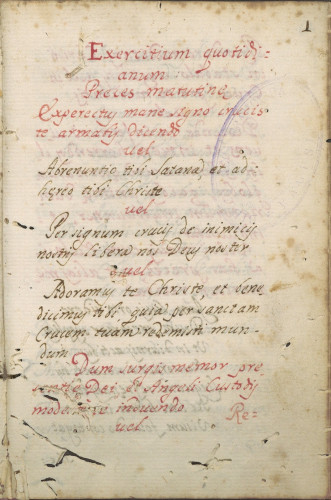 1
Exercitium quotidi=
anum
Preces matutinę
Experectus mane signo crucis
te armatis dicendo
vel
Abrenuntio tibi Satana, et ad
hęreo tibi Christe
vel
Per signum crucis de inimicis
nostris libera nos Deus noster
vel
Adoramus te Christe, et bene
dicimus tibi quia per sanctam
Crucem tuam redemisti mun-
dum
Dum surgis memor prę
sentię Dei et Angeli Custodis
induendo
vel
Re=